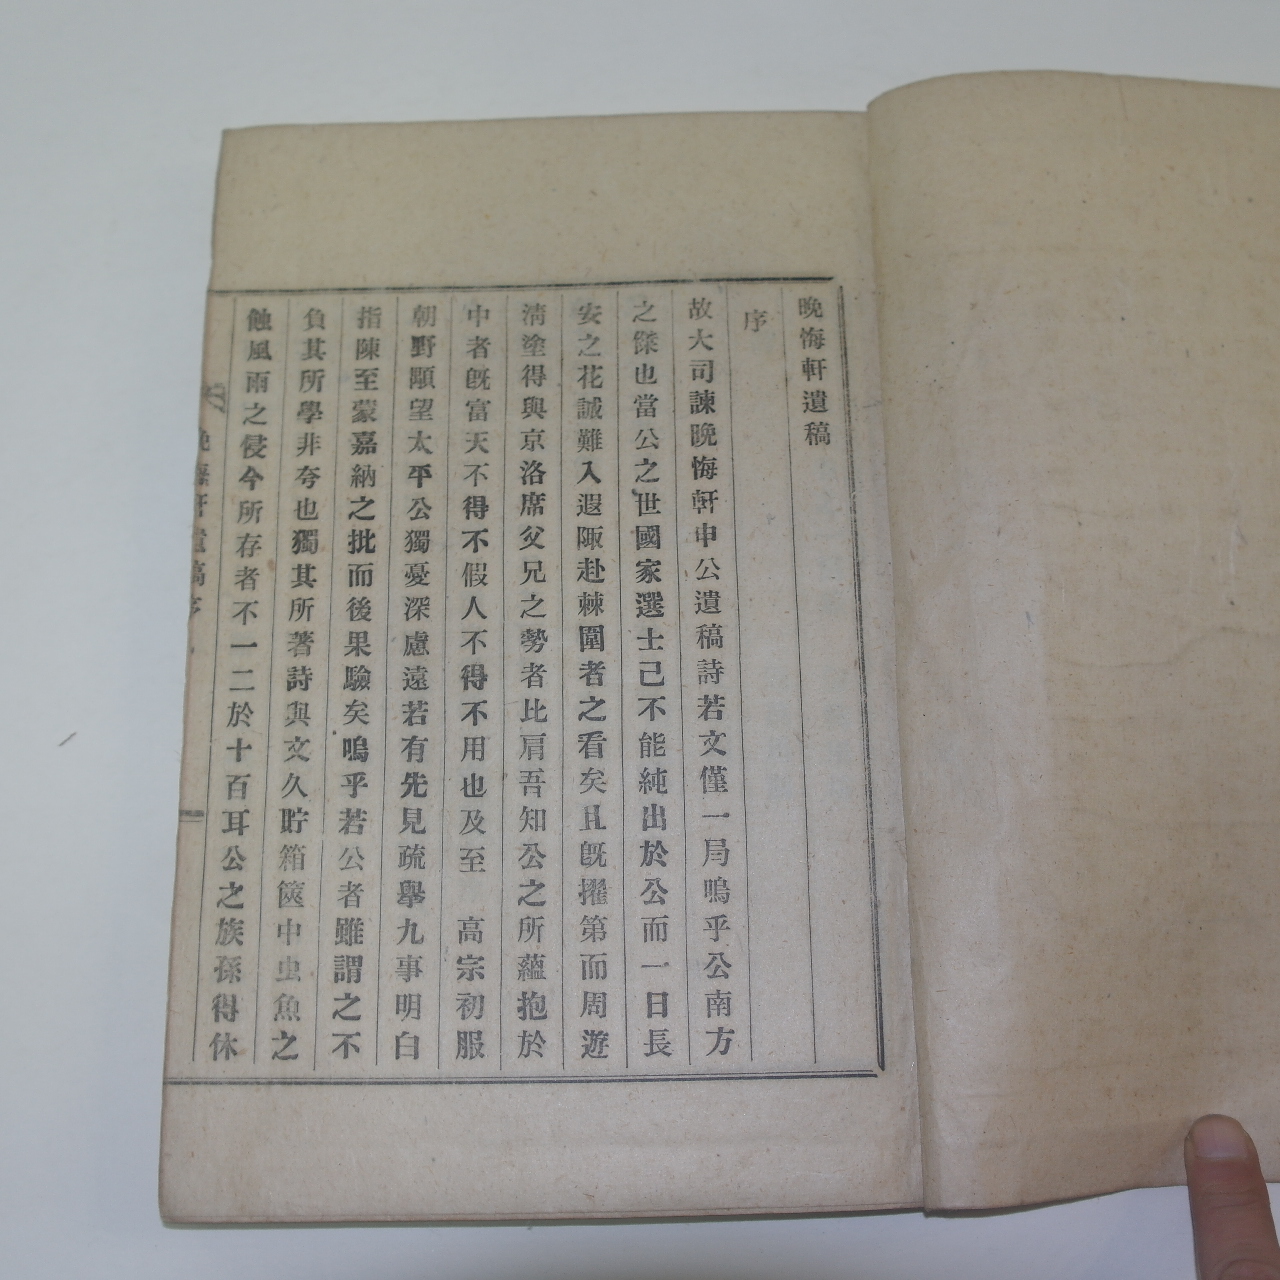 晩悔軒遺稿
序
故大司諫晩悔軒申公遺稿詩若文僅一局嗚乎公南方
之傑也當公之世國家選士已不能純出於公而一日長
安之花誠難入遐陬赴棘圍者之看矣且旣擢第而周遊
淸塗得與京洛席父兄之勢者比肩吾知公之所蘊抱於
中者旣富天不得不假人不得不用也及至 高宗初服
朝野顒望太平公獨憂深慮遠若有先見疏擧九事明白
指陳至蒙嘉納之批而後果驗矣嗚乎若公者雖謂之不
負其所學非夸也獨其所著詩與文久貯箱篋中虫魚之
蝕風雨之侵今所存者不一二於十百耳公之族孫得休
晩悔軒遺稿序